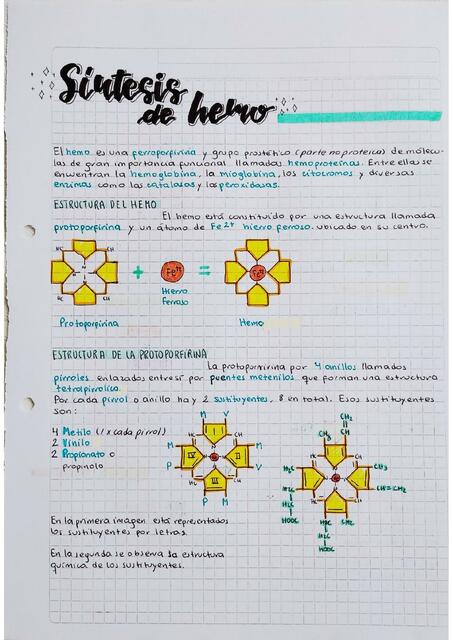 Síntesis
de hemo
El hemo es una ferroporfirina y grupo prostético (parte no proteica) de molécu-
las de gran importancia funcional llamadas hemoproteínas. Entre ellas se
encuentran la hemoglobina, la mioglobina, los citocromos y diversas
enzimas como las catalasas y las peroxidasas.
ESTRUCTURA DEL HEMO
El hemo está constituido por una estructura llamada
protoporfirina y un átomo de Fe2+ hierro ferroso. ubicado en su centro.
HC CH
HC CH
+
Fe2+
=
Fe2+
Hierro
Ferroso
Protoporfirina
Hemo
ESTRUCTURA DE LA PROTOPORFIRINA
La protoporfirina por 4 anillos llamados
pirroles enlazados entre sí por puentes metenilos que forman una estructura
tetrapirrólica.
Por cada pirrol o anillo hay 2 sustituyentes, 8 en total. Esos sustituyentes
son:
4 Metilo (1 x cada pirrol)
2 Vinilo
2 Propionato o
propinolo
M V
I
M IV II M
P V
III
P M
CH2
CH
CH3
H3C CH3
CH=CH2
HOOC
CH3
HOOC
En la primera imagen está representados
los sustituyentes por letras.
En la segunda se observa la estructura
química de los sustituyentes.